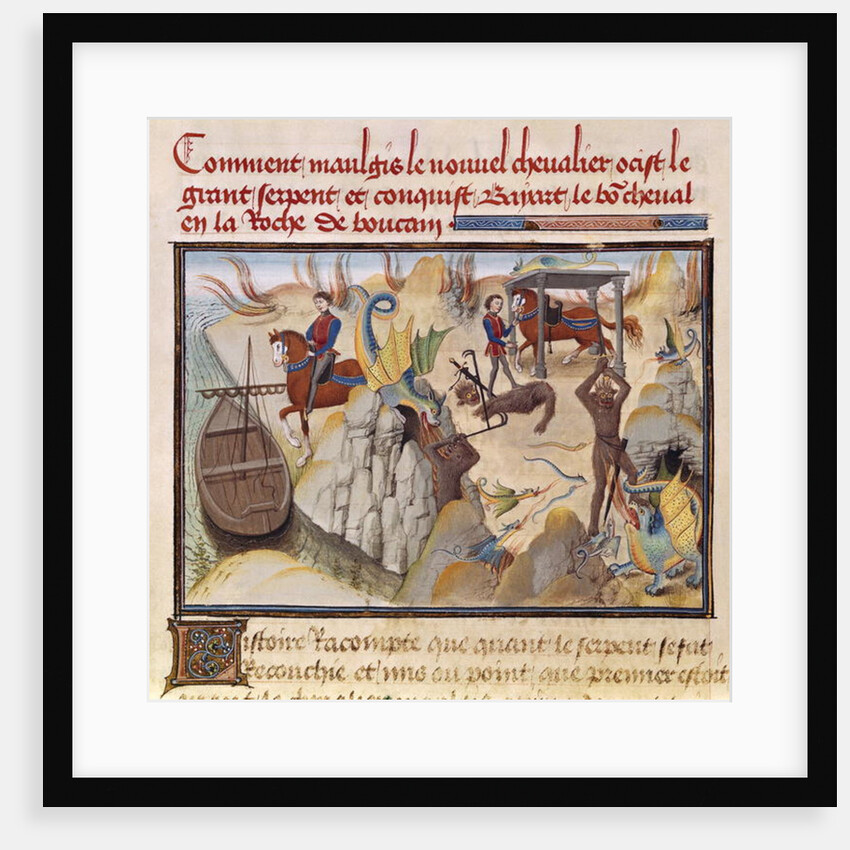 Comment maulgis le nouvel chevalier ocist le
grant serpent et conquist Bayart le bõ cheval
en la Roche de boucam
istoire Racompte que quant le serpent se fut
Recouchie et mis ou point que premier estoit